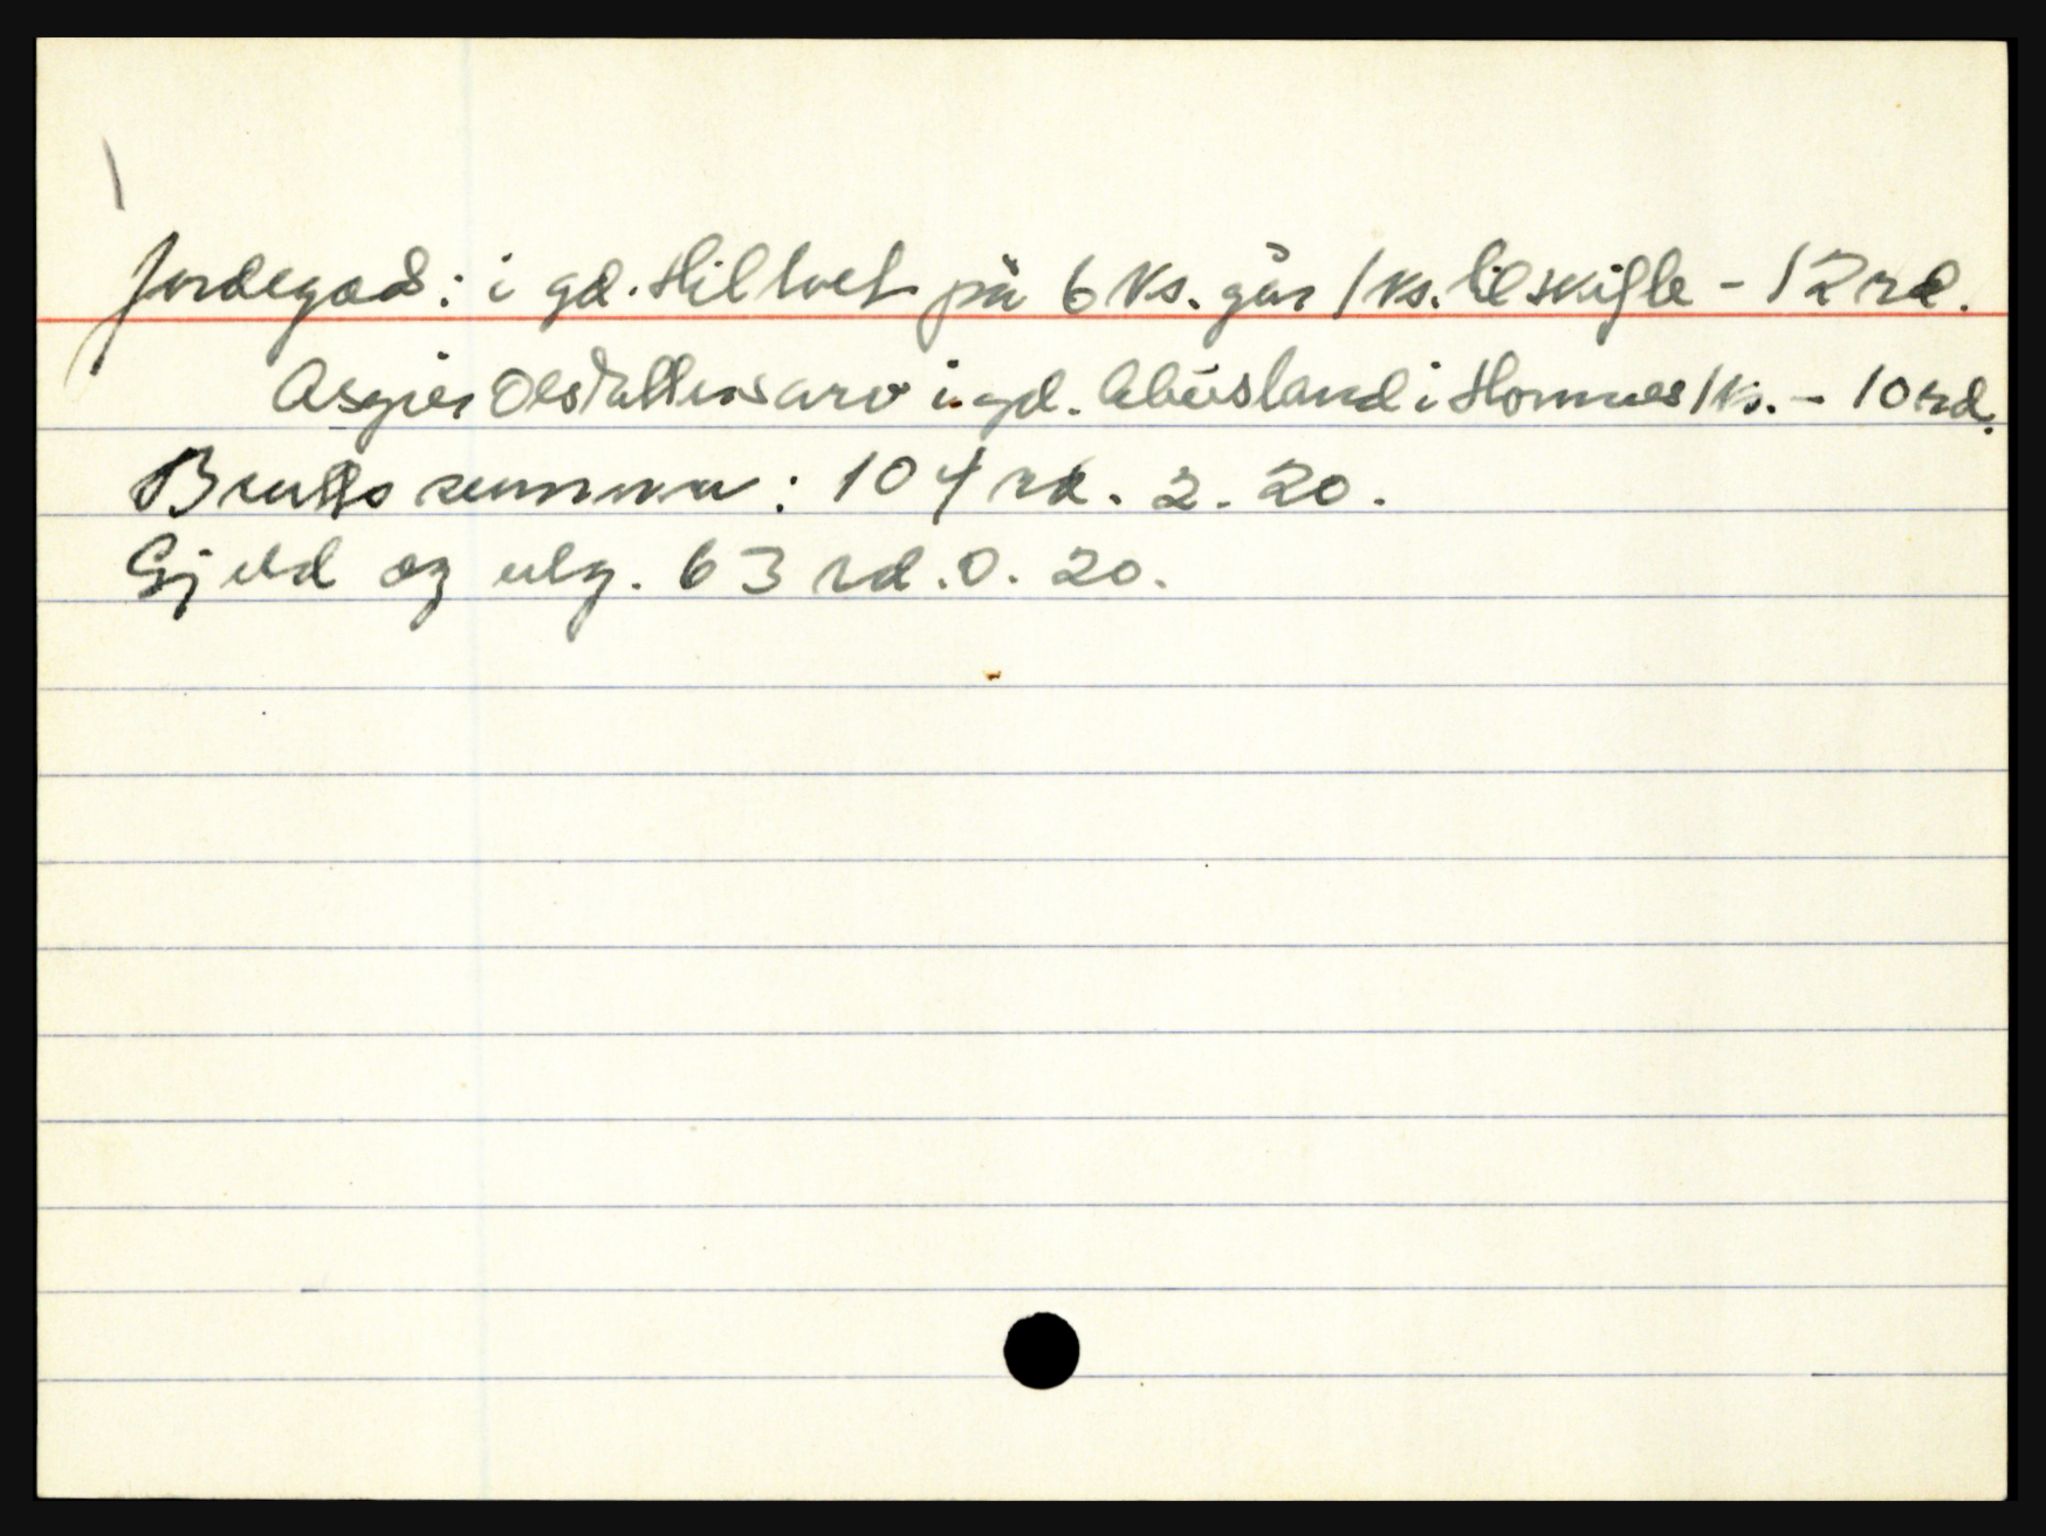 Jordegods: i gd. Hiltveit på 6 ks. går 1 ks. til skifte - 12 rd.
Asgier Olsdatters arv i gd. Abusland i Homnes 1 ks. - 10 rd.
Brutto summa: 104 rd. 2. 20.
Gjeld og utg. 63 rd. 0. 20.